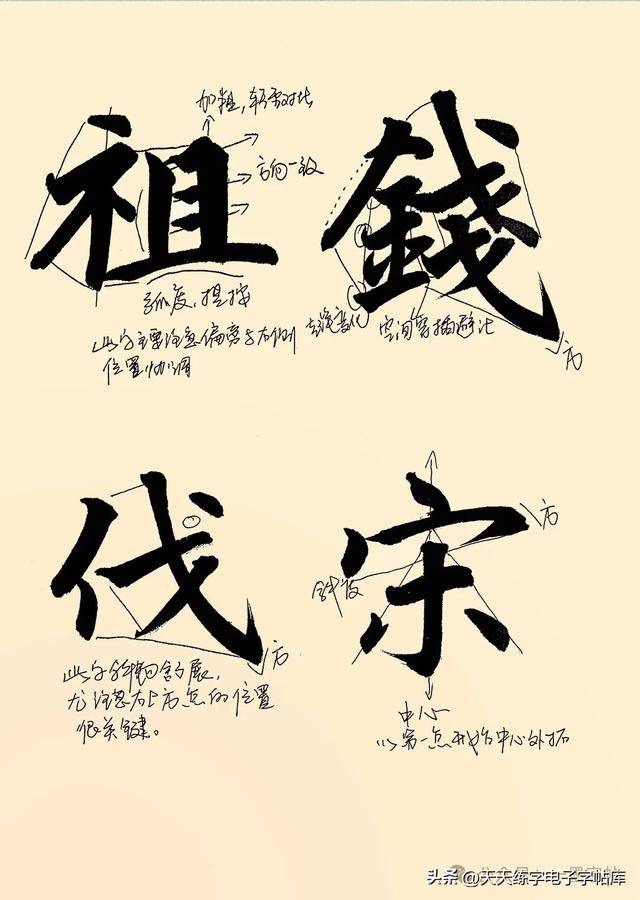 加粗，轻重对比
祖
錢
方向一致
弧度，提按
此字主要注意偏旁与右侧
位置协调
空间穿插避让
方
伐
宋
方
斜度
方
此字斜钩舒展，
尤注意右上方点的位置
很关键。
中心
以第一点开始中心外拓
头条 @天天练字电子字帖库